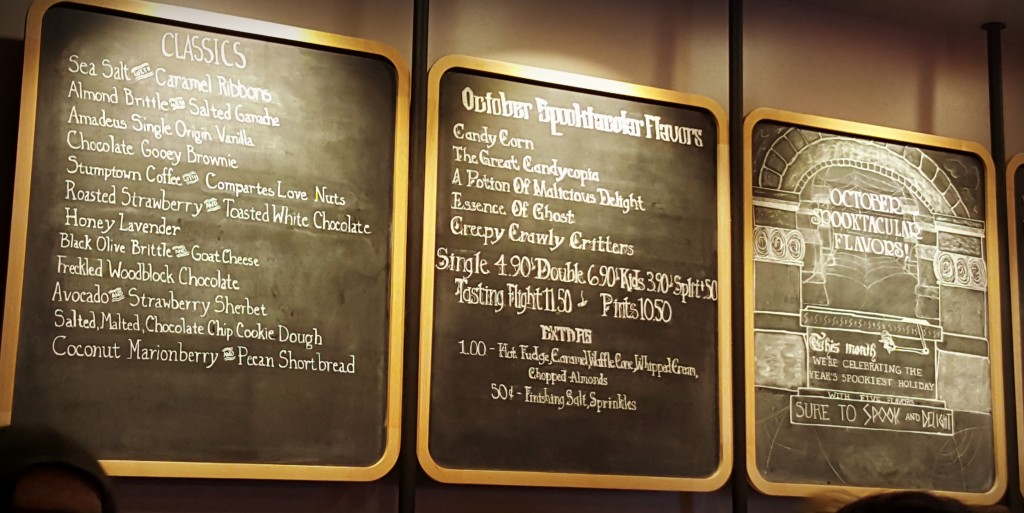 CLASSICS
Sea Salt with Caramel Ribbons
Almond Brittle with Salted Ganache
Amadeus Single Origin Vanilla
Chocolate Gooey Brownie
Stumptown Coffee with Compartes Love Nuts
Roasted Strawberry and Toasted White Chocolate
Honey Lavender
Black Olive Brittle and Goat Cheese
Freckled Woodblock Chocolate
Avocado and Strawberry Sherbet
Salted, Malted, Chocolate Chip Cookie Dough
Coconut Marionberry and Pecan Shortbread
October Spooktacular Flavors
Candy Corn
The Great Candycopia
A Potion Of Malicious Delight
Essence Of Ghost
Creepy Crawly Critters
Single 4.90 Double 6.90 Kids 3.90 Split +.50
Tasting Flight 11.50 Pints 10.50
EXTRAS
1.00 - Hot Fudge, Caramel, Waffle Cone, Whipped Cream,
Chopped Almonds
50¢ - Finishing Salt, Sprinkles
OCTOBER
SPOOKTACULAR
FLAVORS!
This month
WE'RE CELEBRATING THE
YEAR'S SPOOKIEST HOLIDAY
WITH FIVE FLAVORS
SURE TO SPOOK AND DELIGHT